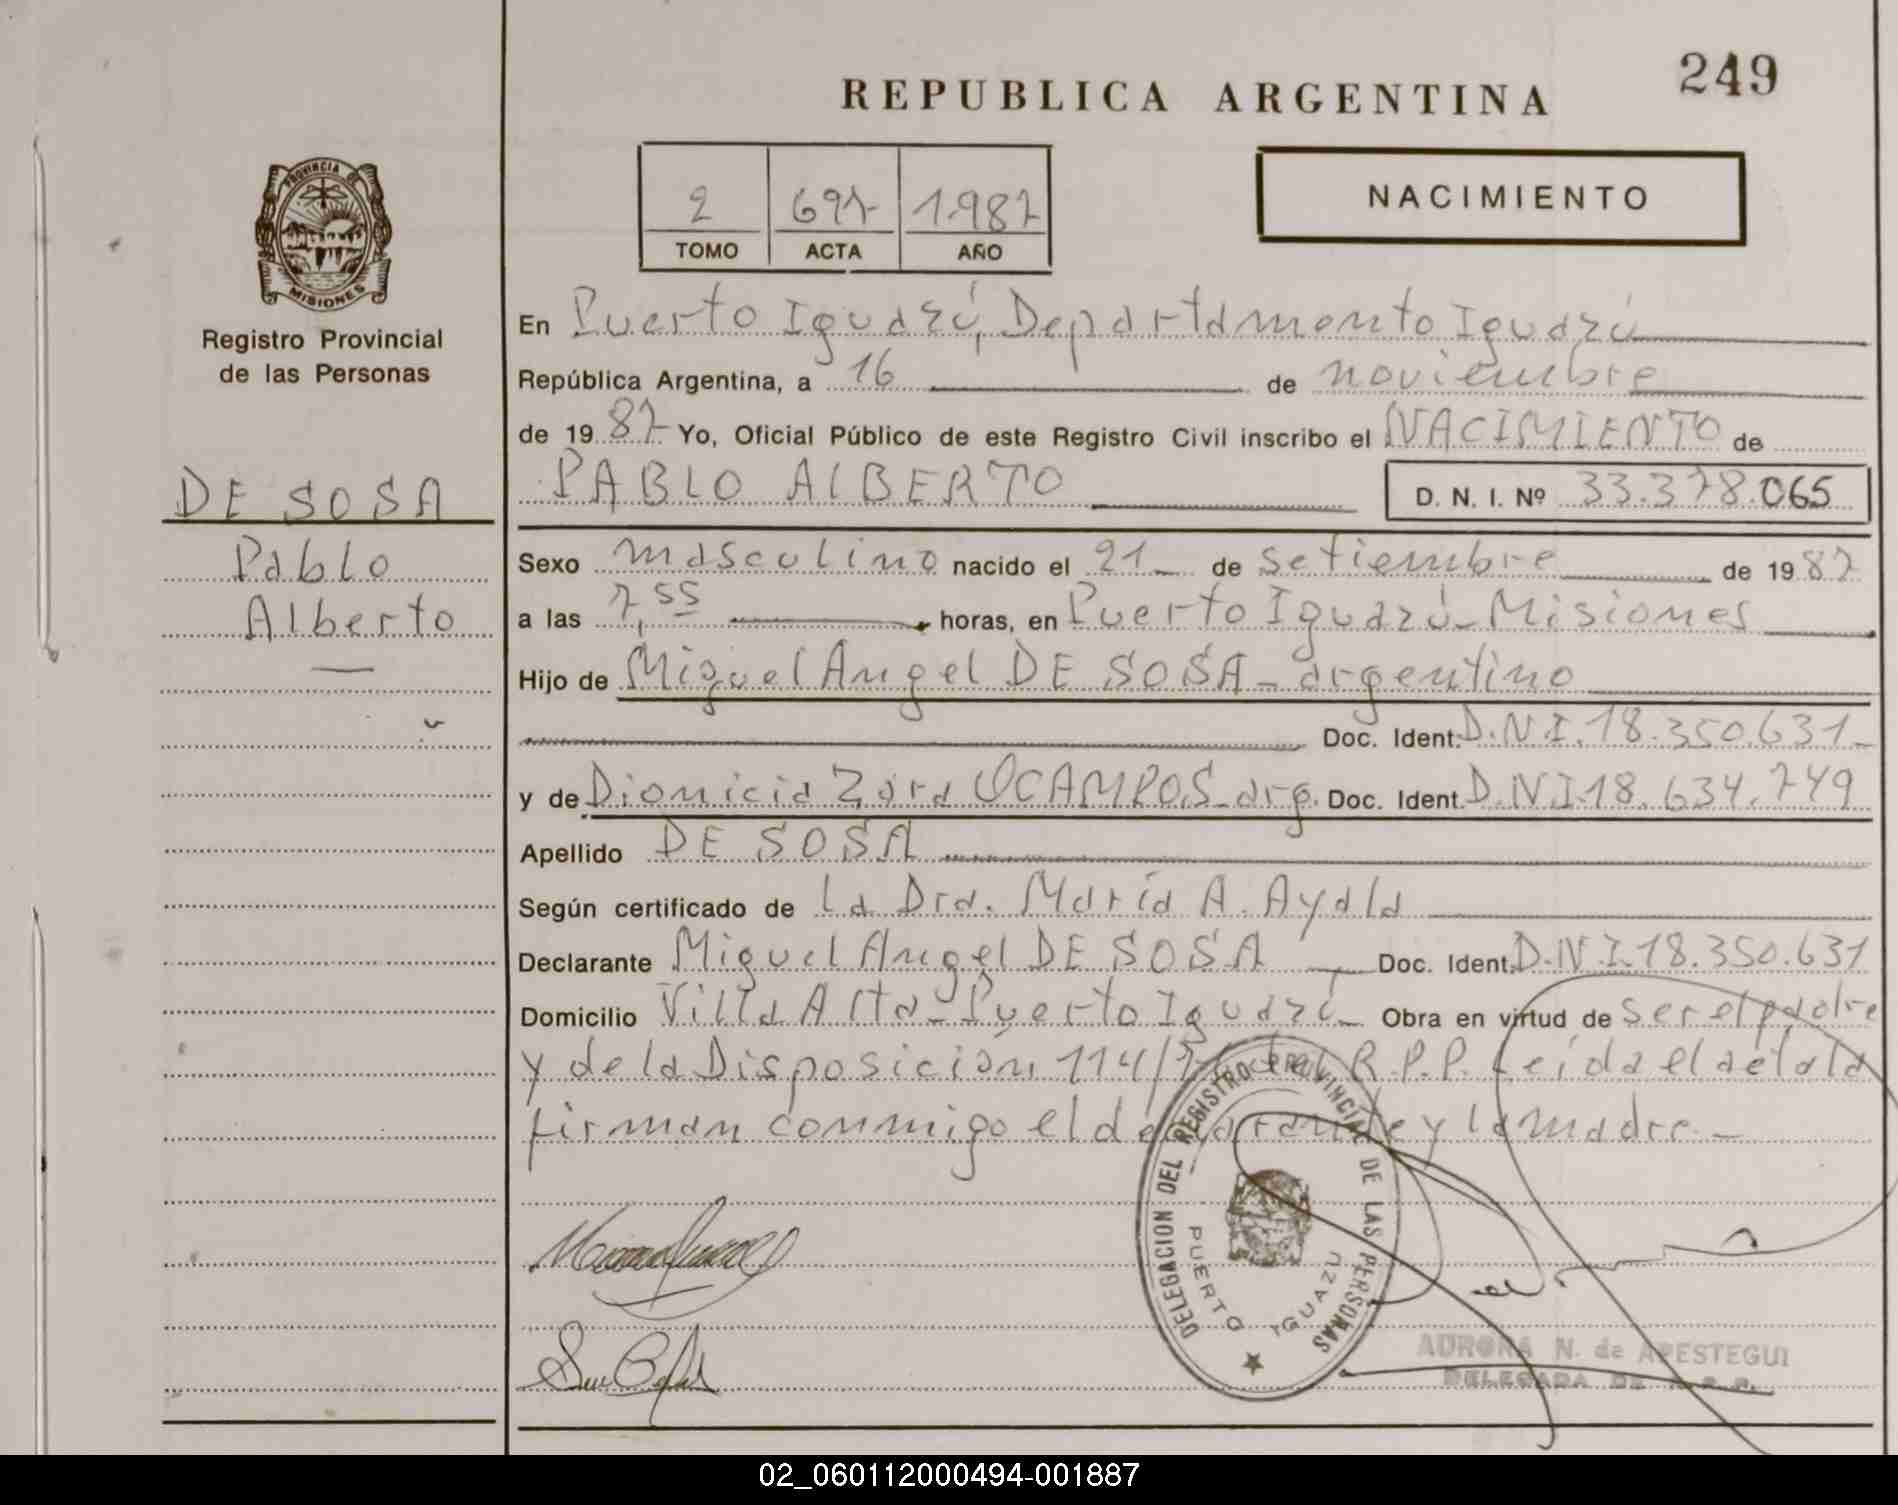 249
REPUBLICA ARGENTINA
2 697 1.987
TOMO ACTA AÑO
NACIMIENTO
PROVINCIA DE
MISIONES
Registro Provincial
de las Personas
DE SOSA
Pablo
Alberto
En Puerto Iguazú, Departamento Iguazú
República Argentina, a 16 de noviembre
de 19 87 Yo, Oficial Público de este Registro Civil inscribo el NACIMIENTO de
PABLO ALBERTO D. N. I. Nº 33.378.065
Sexo masculino nacido el 21 de setiembre de 19 87
a las 7,55 horas, en Puerto Iguazú - Misiones
Hijo de Miguel Angel DE SOSA - argentino
Doc. Ident. D.N.I. 18.350.631
y de Dionicia Zara OCAMPOS - arg. Doc. Ident. D.N.I 18.634.749
Apellido DE SOSA
Según certificado de la Dra. María A. Ayala
Declarante Miguel Angel DE SOSA Doc. Ident. D.N.I. 18.350.631
Domicilio Villa Alta - Puerto Iguazú - Obra en virtud de ser el padre
y de la Disposición 114/ del R.P.P. Leída el acta la
firman conmigo el declarante y la madre. -
DELEGACION DEL REGISTRO PROVINCIAL DE LAS PERSONAS
PUERTO IGUAZU
AURORA N. de APESTEGUI
DELEGADA DE R.P.P.
02_060112000494-001887